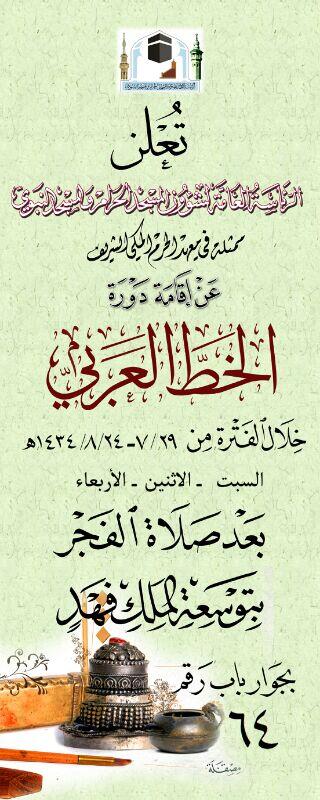 تُعْلن
الرئاسة العامة لشؤون المسجد الحرام والمسجد النبوي
ممثلة في معهد الحرم المكي الشريف
عَنْ إقَامَة دَوْرَة
الخطّ العَرَبيّ
خِلَال الفَتْرة مِن ٧/٢٩ - ١٤٣٤/٨/٢٤هـ
السبت - الاثنين - الأربعاء
بَعْد صَلَاة الفَجْر
بتَوسعَة الملك فَهْدٍ
بجوَار باب رَقم
٦٤